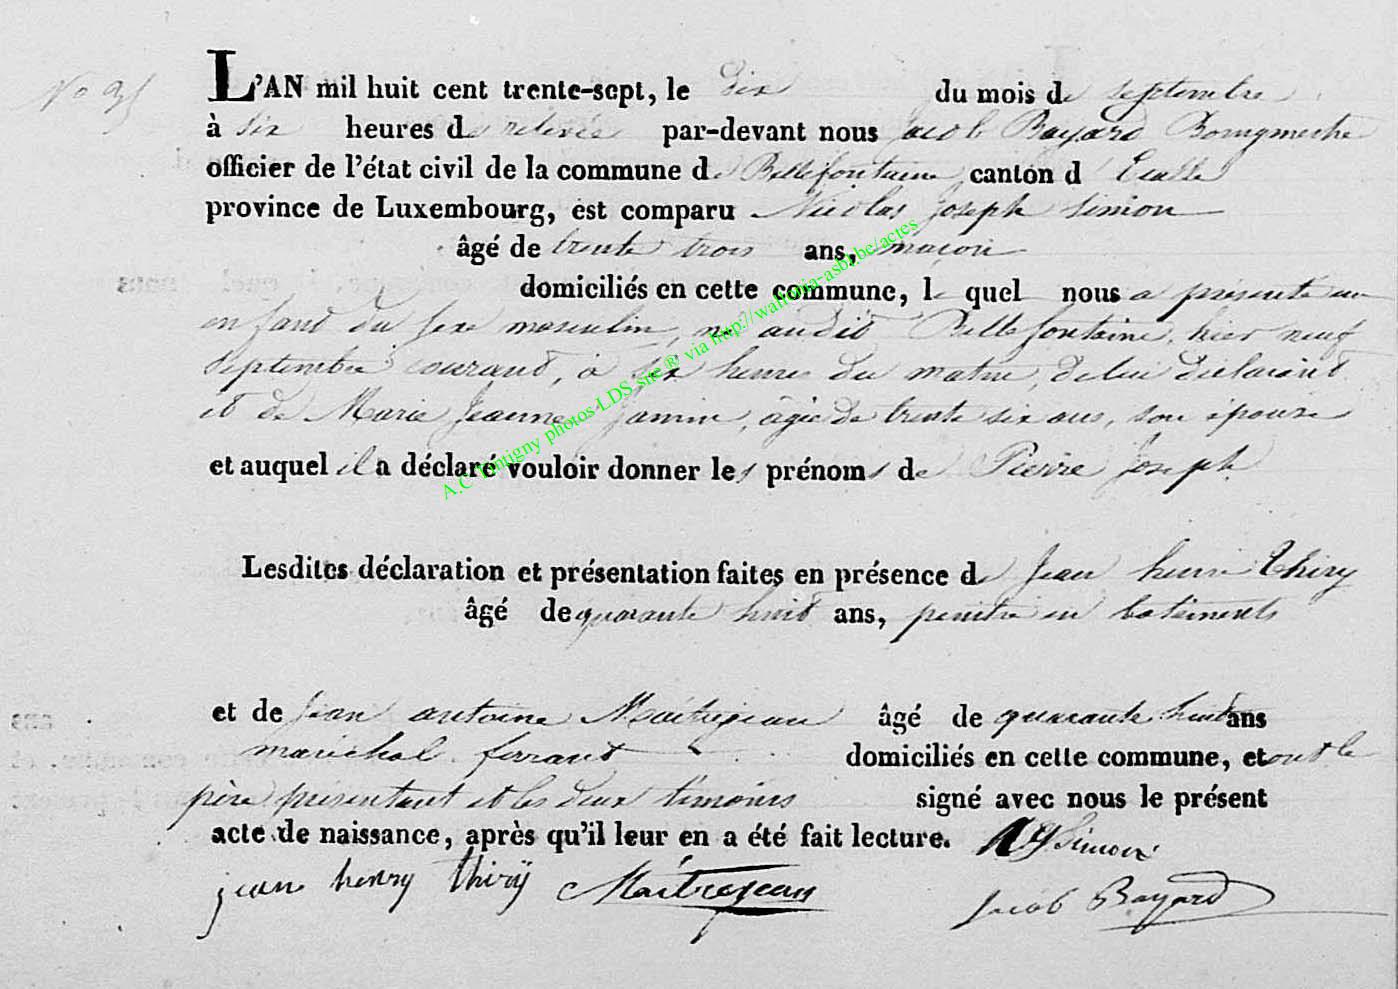 No 35
L'AN mil huit cent trente-sept, le dix du mois de septembre
à six heures de relevée par-devant nous Jacob Bayard Bourgmestre
officier de l'état civil de la commune de Bellefontaine canton d'Etalle
province de Luxembourg, est comparu Nicolas Joseph Simon
âgé de trente trois ans, maçon
domiciliés en cette commune, le quel nous a présenté un
enfant du sexe masculin, né audit Bellefontaine, hier neuf
septembre courant, à six heures du matin, de lui déclarant
et de Marie Jeanne Jamin, agée de trente six ans, son épouse
et auquel il a déclaré vouloir donner les prénoms de Pierre Joseph
Lesdites déclaration et présentation faites en présence de Jean henri Thiry
âgé de quarante huit ans, peintre en batiments
et de Jean antoine Maitrejean âgé de quarante huit ans
maréchal ferrant domiciliés en cette commune, et ont le
père présentant et les deux témoins signé avec nous le présent
acte de naissance, après qu'il leur en a été fait lecture. NJ Simon
jean henry thirÿ Maitrejean
Jacob Bayard
A.C Tintigny photos LDS site ® via http://wallonia-asbl.be/actes